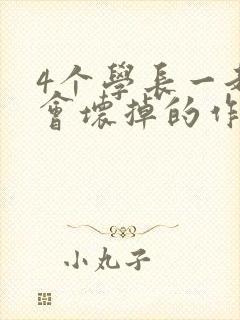 4个學長一
會壞掉的作
小丸子